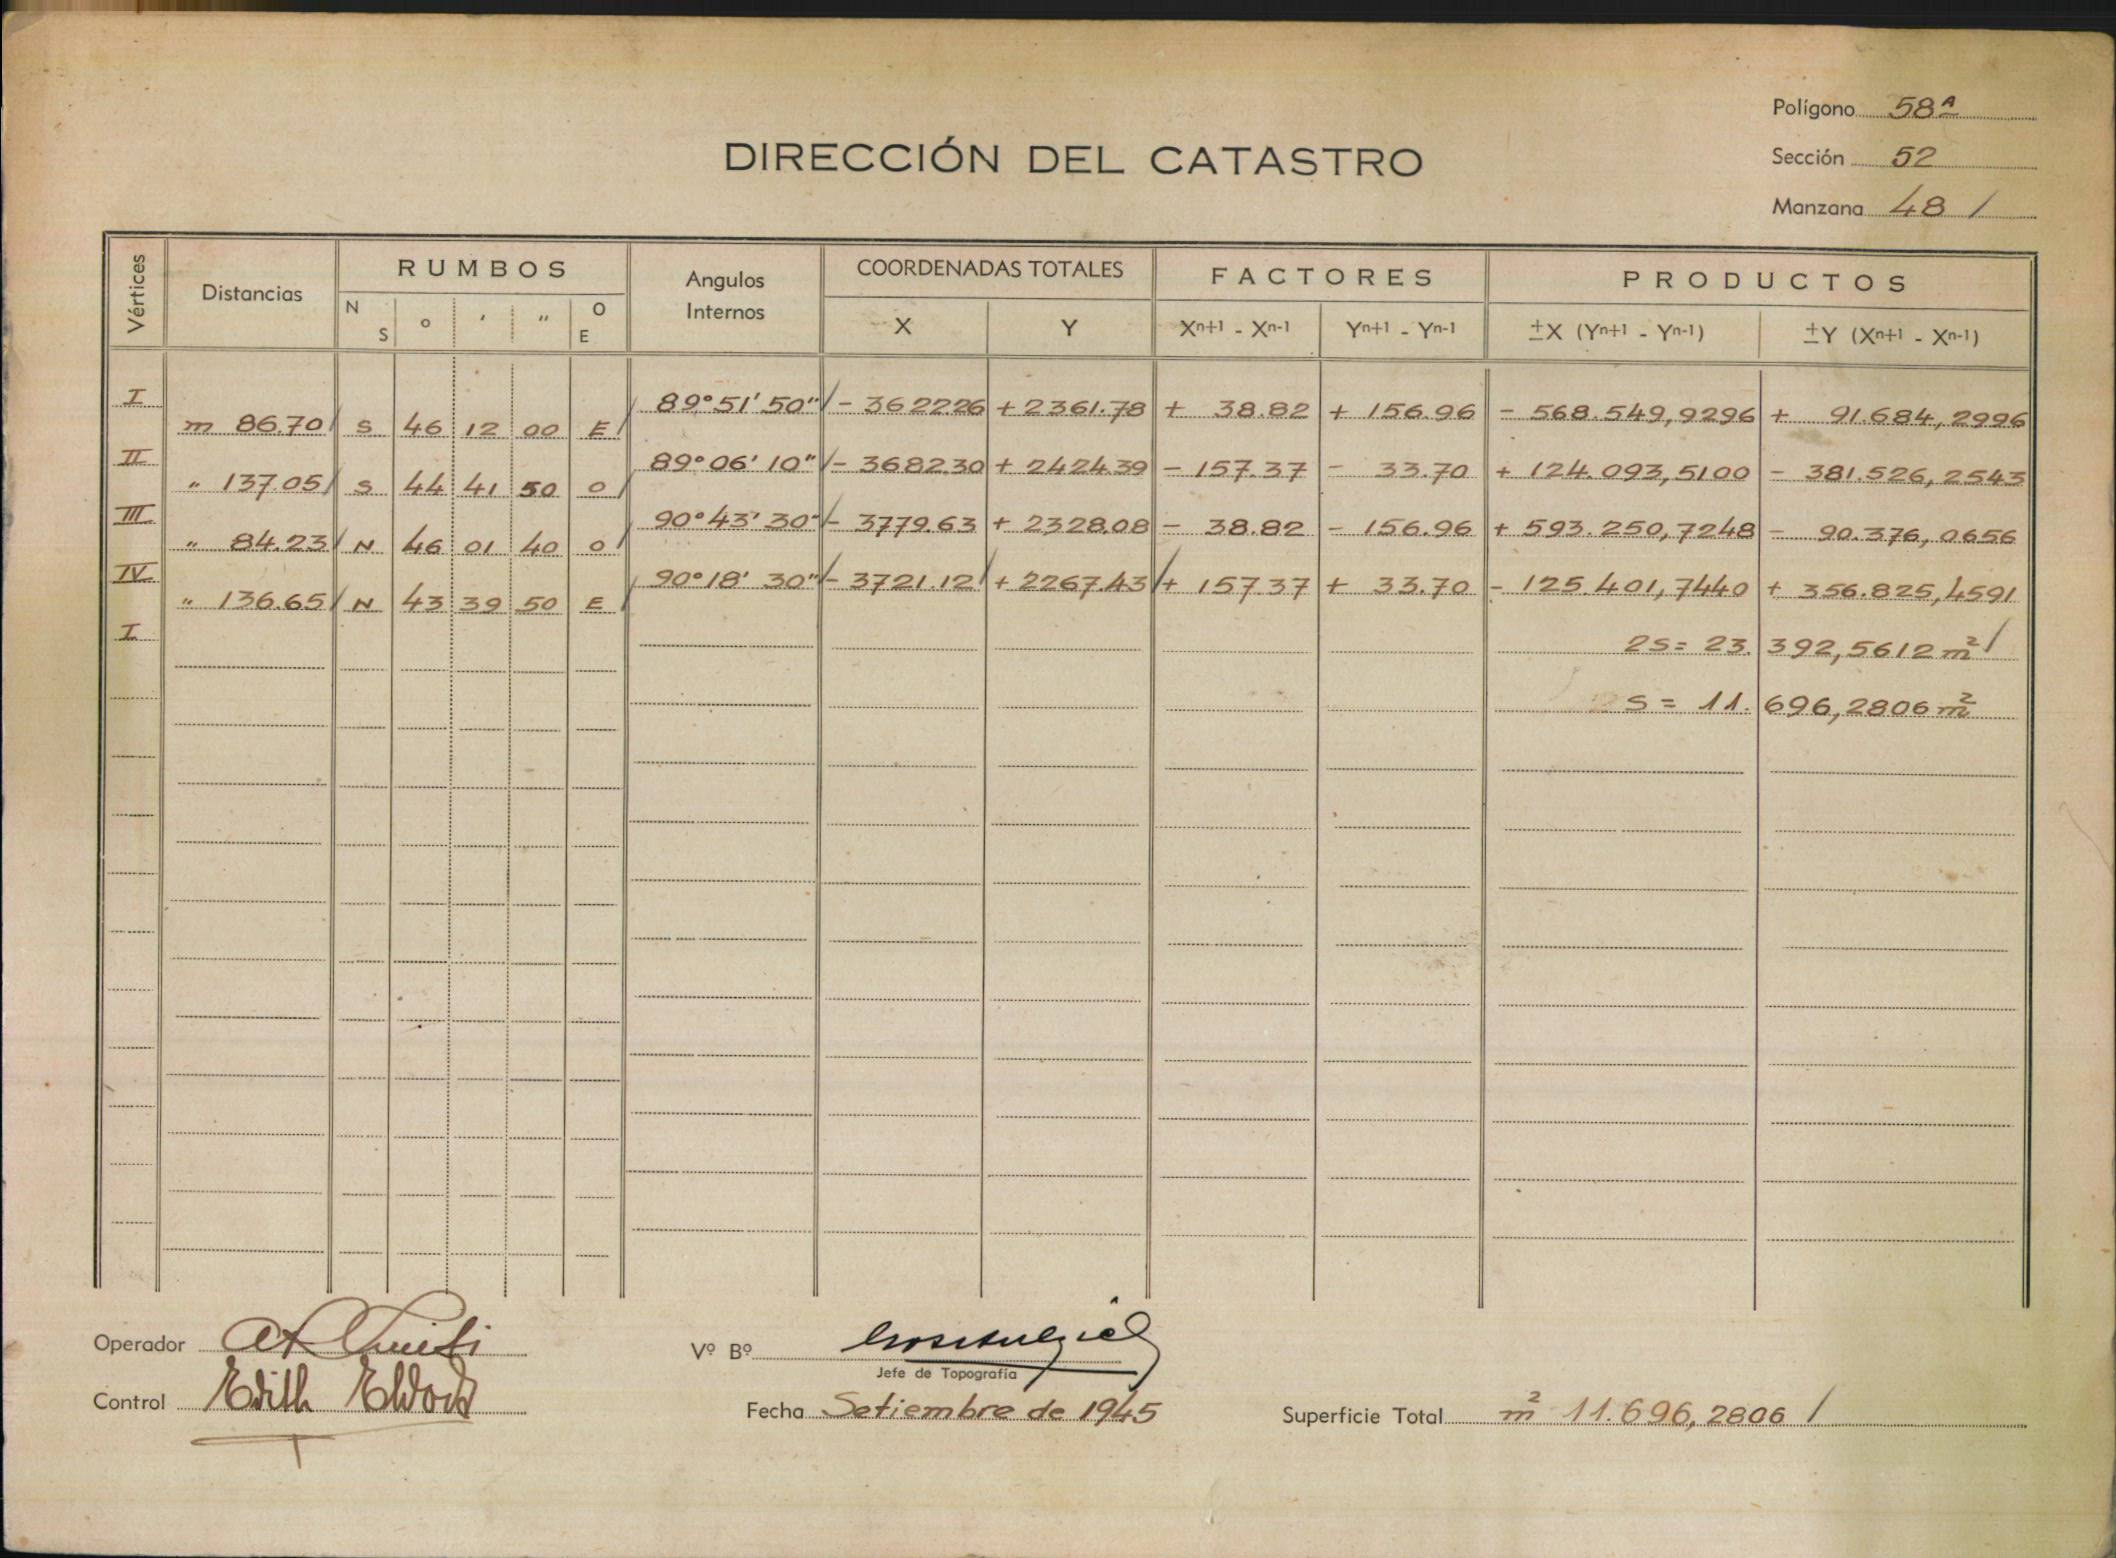 Polígono 58ª
DIRECCIÓN DEL CATASTRO
Sección 52
Manzana 48 /
Vértices Distancias RUMBOS Angulos Internos COORDENADAS TOTALES FACTORES PRODUCTOS
N S o ' " O E X Y Xn+1 - Xn-1 Yn+1 - Yn-1 ±X (Yn+1 - Yn-1) ±Y (Xn+1 - Xn-1)
I 89°51'50" - 362226 + 2361.78 + 38.82 + 156.96 - 568.549,9296 + 91.684,2996
m 86.70 S 46 12 00 E
II 89°06'10" - 368230 + 242439 - 157.37 - 33.70 + 124.093,5100 - 381.526,2543
" 137.05 S 44 41 50 O
III 90°43'30" - 3779.63 + 2328.08 - 38.82 - 156.96 + 593.250,7248 - 90.376,0656
" 84.23 N 46 01 40 O
IV 90°18'30" - 3721.12 + 2267.43 + 157.37 + 33.70 - 125.401,7440 + 356.825,4591
" 136.65 N 43 39 50 E
I 2S = 23.392,5612 m² /
S = 11.696,2806 m²
Operador
Vº Bº
Jefe de Topografía
Control Edith
Fecha Setiembre de 1945
Superficie Total m² 11.696,2806 /